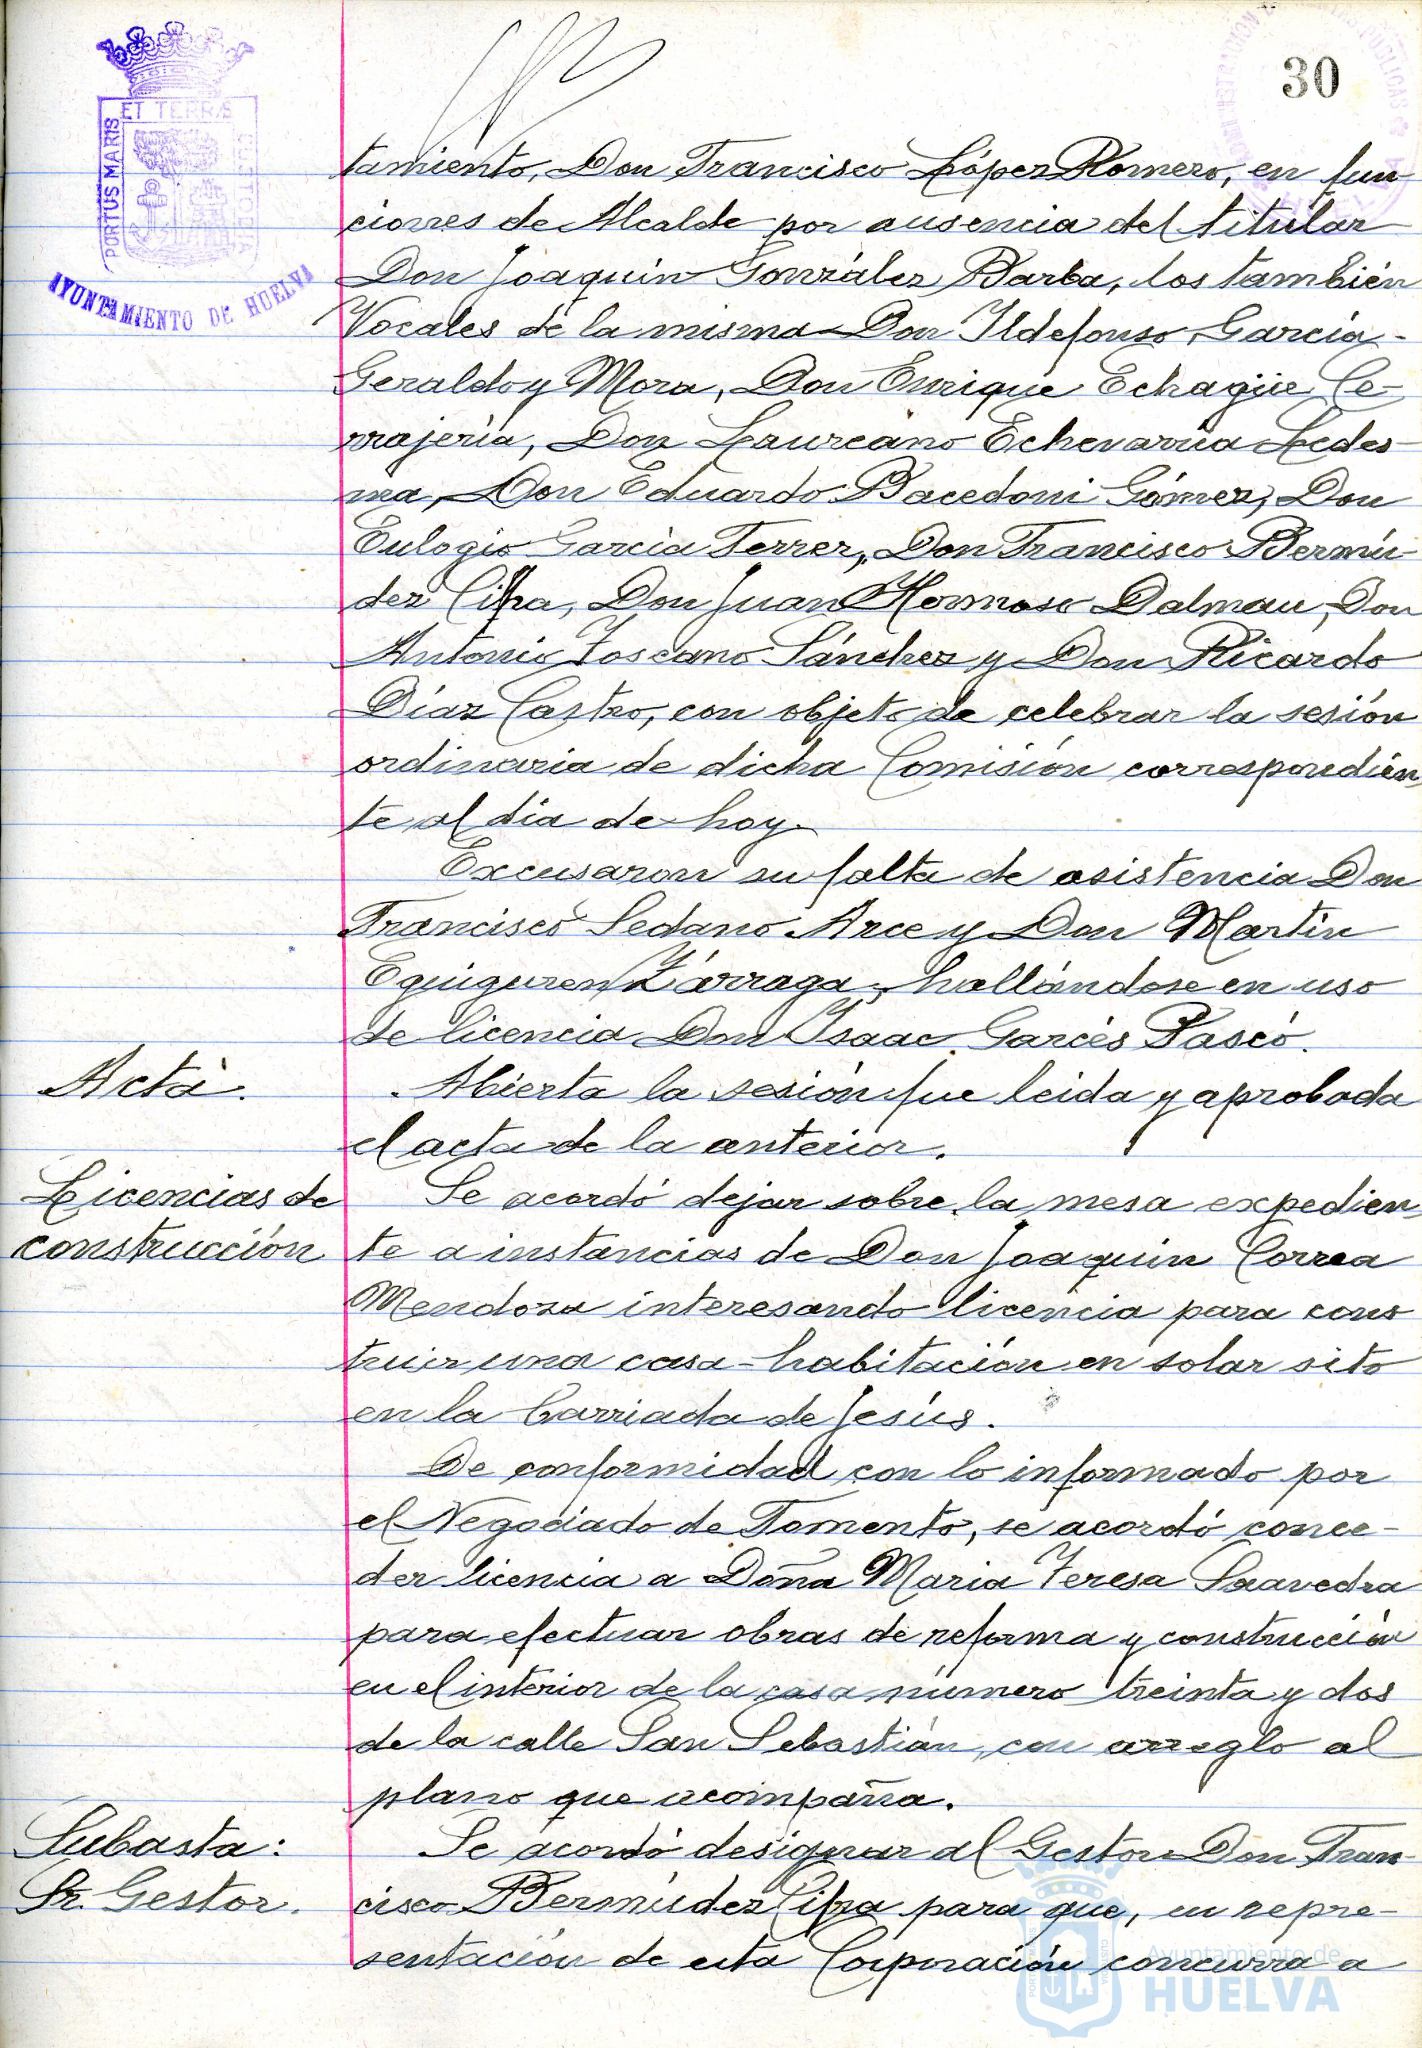 30
PORTUS MARIS
ET TERRÆ
CUSTODIA
AYUNTAMIENTO DE HUELVA
tamiento, Don Francisco López Romero, en fun-
ciones de Alcalde por ausencia del titular
Don Joaquín González Barba, los también
Vocales de la misma Don Ildefonso García-
Geraldo y Mora, Don Enrique Echagüe Ce-
rrajería, Don Laureano Echevarría Ledes-
ma, Don Eduardo Bacedoni Gómez, Don
Eulogio García Ferrer, Don Francisco Bermú-
dez Cifra, Don Juan Hermoso Dalmau, Don
Antonio Toscano Sánchez y Don Ricardo
Díaz Castro, con objeto de celebrar la sesión
ordinaria de dicha Comisión correspondien-
te al día de hoy.
Excusaron su falta de asistencia Don
Francisco Sedano Arce y Don Martín
Eguiguren Zárraga, hallándose en uso
de licencia Don Isaac Garcés Pascó.
Acta.
Abierta la sesión fue leida y aprobada
el acta de la anterior.
Licencias de
construcción
Se acordó dejar sobre la mesa expedien-
te a instancias de Don Joaquín Correa
Mendoza interesando licencia para cons
truir una casa-habitación en solar sito
en la barriada de Jesús.
De conformidad con lo informado por
el Negociado de Fomento, se acordó conce-
der licencia a Doña María Teresa Saavedra
para efectuar obras de reforma y construcción
en el interior de la casa número treinta y dos
de la calle San Sebastián, con arreglo al
plano que acompaña.
Subasta:
Sr. Gestor.
Se acordó designar al Gestor Don Fran-
cisco Bermúdez Cifra para que, en repre-
sentación de esta Corporación concurra a
Ayuntamiento de
HUELVA